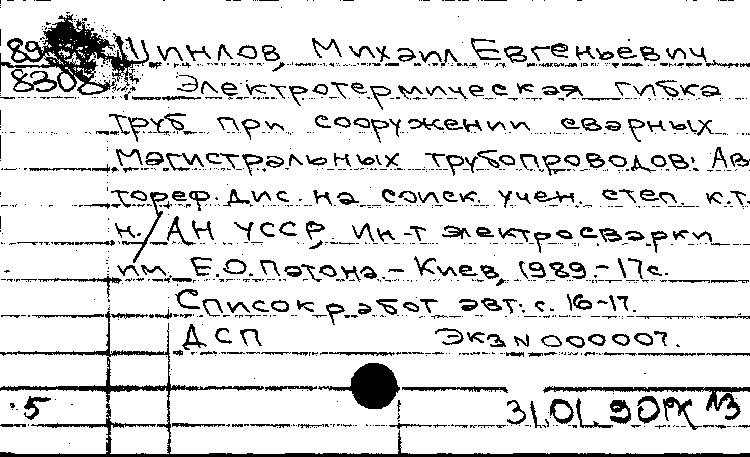 89 Шинлов, Михаил Евгеньевич
8308 Электротермическая гибка
труб при сооружении сварных
магистральных трубопроводов: Ав
тореф. дис. на соиск. учен. степ. к.т.
н. / АН УССР, Ин-т электросварки
им. Е.О. Патона. - Киев, 1989. - 17 с.
Список работ авт.: с. 16-17.
ДСП Экз N 000007.
5 31.01.90